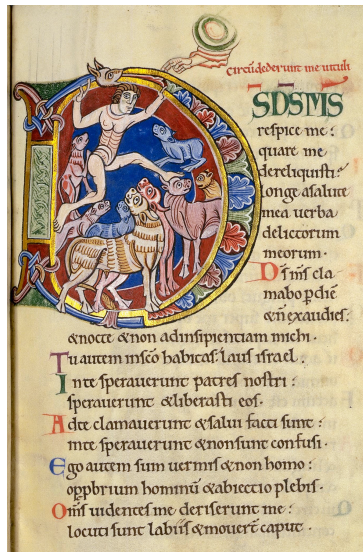 Circūdederunt me vituli
DSDSMS
respice me:
quare me
dereliquisti:
longe a salute
mea verba
delictorum
meorum.
Ds m̄s cla
mabo p diē
& ñ exaudies:
& nocte & non ad insipientiam michi.
Tu autem in sc̄o habitas: laus israel.
In te speraverunt patres nostri:
speraverunt & liberasti eos.
Ad te clamaverunt & salui facti sunt:
in te speraverunt & non sunt confusi.
Ego autem sum vermis & non homo:
opprbrium hominū & abiectio plebis.
Om̄s videntes me deriserunt me:
locuti sunt labiis & moverūt caput.